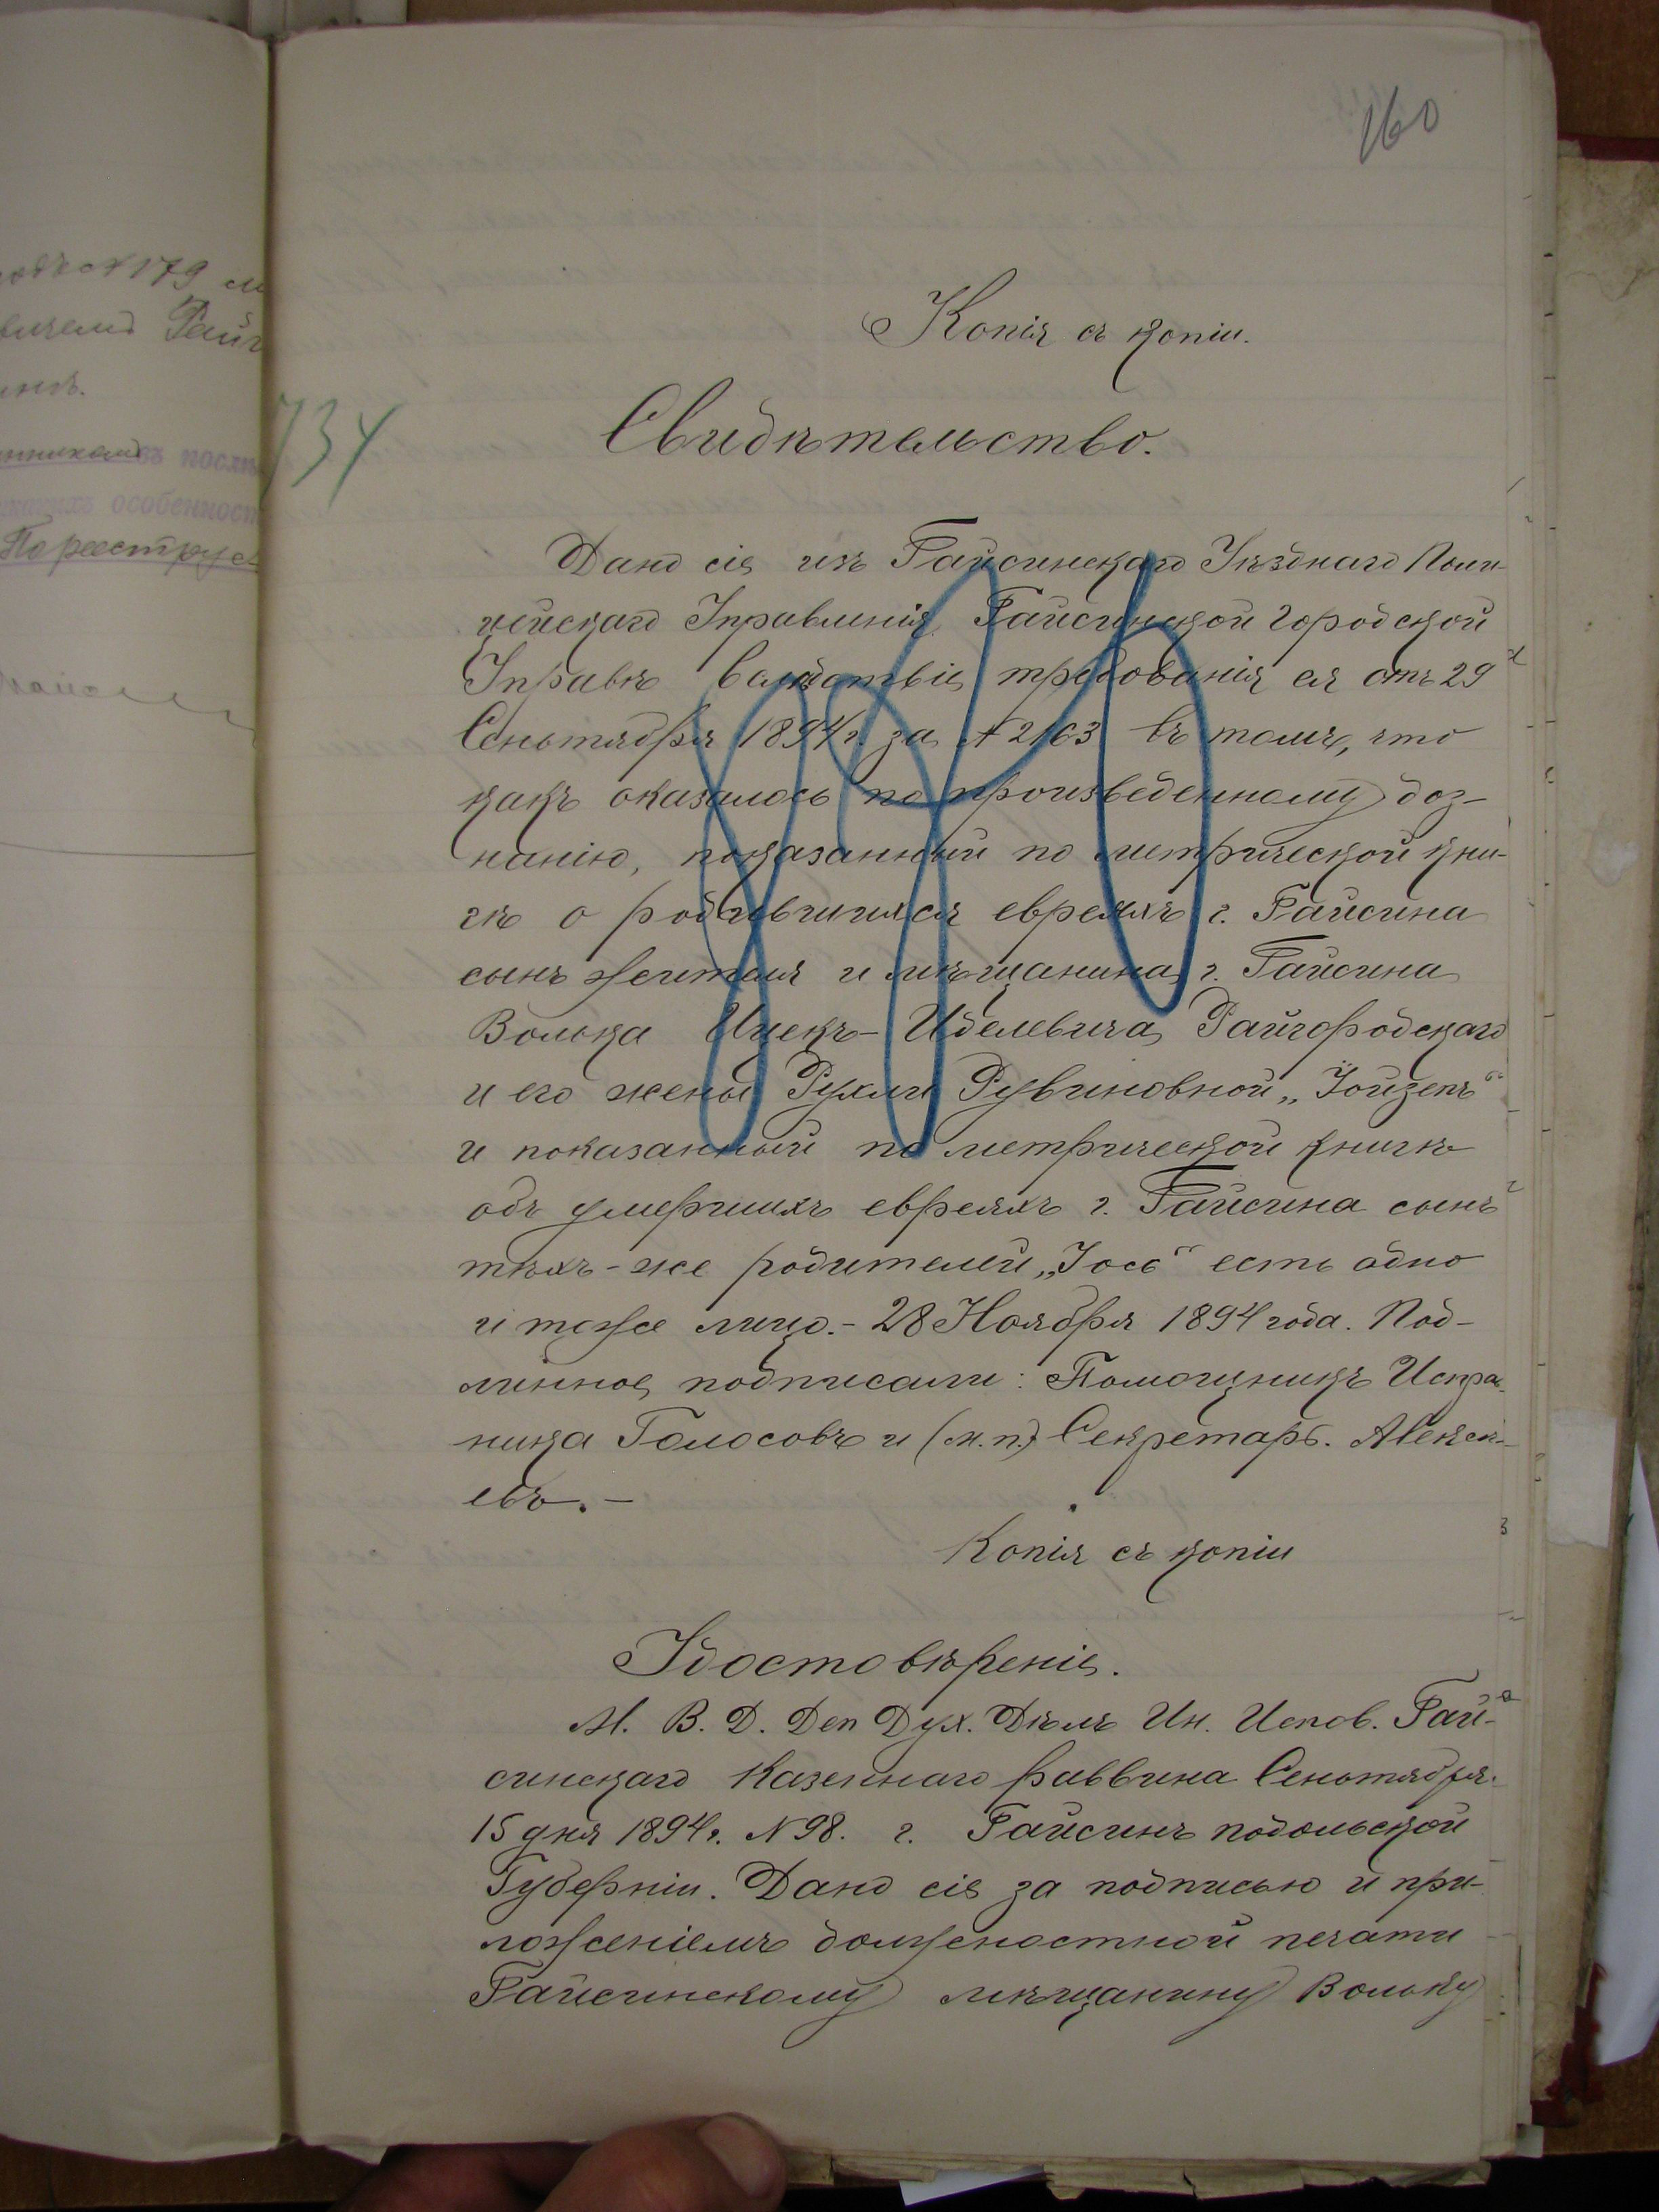 160
Копія съ копіи.
734
Свидѣтельство.
№ 179
Рай
Дано сіе изъ Гайсинскаго Уѣзднаго Поли-
цейскаго Управленія Гайсинской Городской
Управѣ вслѣдствіе требованія ея отъ 29
Сентября 1894 г. за № 2163 въ томъ, что
какъ оказалось по произведенному доз-
нанію, показанный по метрической кни-
гѣ о родившихся евреяхъ г. Гайсина
сынъ жителя и мѣщанина г. Гайсина
Волька Ицекъ-Иделевича Райгородскаго
и его жены Рухли Рувиновной „Іойзепъ“
и показанный по метрической книгѣ
объ умершихъ евреяхъ г. Гайсина сынъ
тѣхъ-же родителей „Іось“ есть одно
и тоже лицо.- 28 Ноября 1894 года. Под-
линное подписали: Помощникъ Исправ-
ника Голосовъ и (м.п.) Секретарь. Алексѣ-
евъ.-
Копія съ копіи
Удостовѣреніе.
М. В. Д. Деп Дух. Дѣлъ Ин. Испов. Гай-
синскаго Казеннаго раввина Сентября
15 дня 1894 г. № 98. г. Гайсинъ подольской
Губерніи. Дано сіе за подписью и при-
ложеніемъ должностной печати
Гайсинскому мѣщанину Вольку